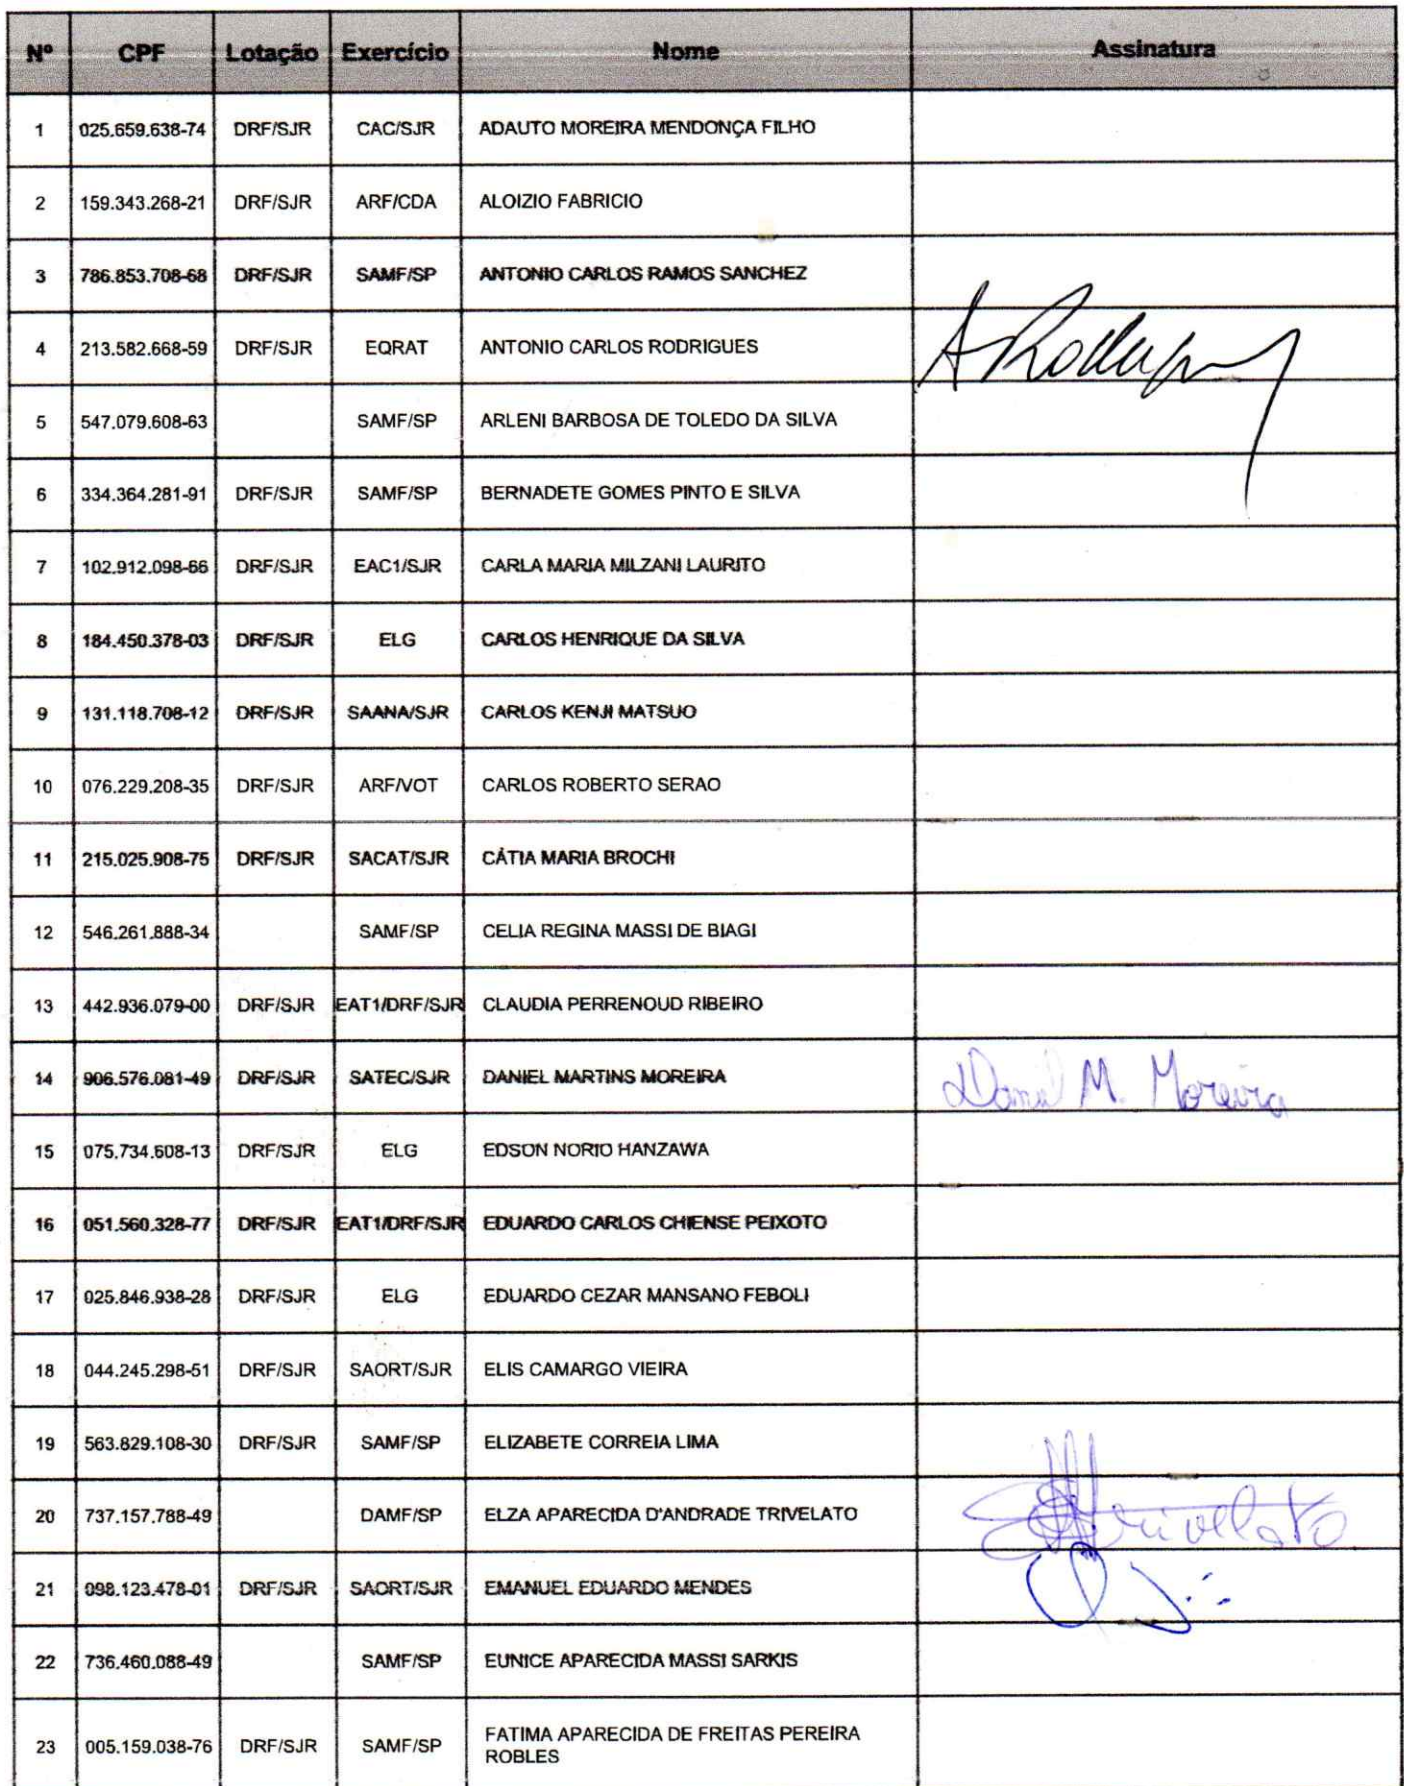 Nº CPF Lotação Exercício Nome Assinatura
1 025.659.638-74 DRF/SJR CAC/SJR ADAUTO MOREIRA MENDONÇA FILHO
2 159.343.268-21 DRF/SJR ARF/CDA ALOIZIO FABRICIO
3 786.853.708-68 DRF/SJR SAMF/SP ANTONIO CARLOS RAMOS SANCHEZ
4 213.582.668-59 DRF/SJR EQRAT ANTONIO CARLOS RODRIGUES
5 547.079.608-63 SAMF/SP ARLENI BARBOSA DE TOLEDO DA SILVA
6 334.364.281-91 DRF/SJR SAMF/SP BERNADETE GOMES PINTO E SILVA
7 102.912.098-66 DRF/SJR EAC1/SJR CARLA MARIA MILZANI LAURITO
8 184.450.378-03 DRF/SJR ELG CARLOS HENRIQUE DA SILVA
9 131.118.708-12 DRF/SJR SAANA/SJR CARLOS KENJI MATSUO
10 076.229.208-35 DRF/SJR ARF/VOT CARLOS ROBERTO SERAO
11 215.025.908-75 DRF/SJR SACAT/SJR CÁTIA MARIA BROCHI
12 546.261.888-34 SAMF/SP CELIA REGINA MASSI DE BIAGI
13 442.936.079-00 DRF/SJR EAT1/DRF/SJR CLAUDIA PERRENOUD RIBEIRO
14 906.576.081-49 DRF/SJR SATEC/SJR DANIEL MARTINS MOREIRA Daniel M. Moreira
15 075.734.608-13 DRF/SJR ELG EDSON NORIO HANZAWA
16 051.560.328-77 DRF/SJR EAT1/DRF/SJR EDUARDO CARLOS CHIENSE PEIXOTO
17 025.846.938-28 DRF/SJR ELG EDUARDO CEZAR MANSANO FEBOLI
18 044.245.298-51 DRF/SJR SAORT/SJR ELIS CAMARGO VIEIRA
19 563.829.108-30 DRF/SJR SAMF/SP ELIZABETE CORREIA LIMA
20 737.157.788-49 DAMF/SP ELZA APARECIDA D'ANDRADE TRIVELATO Trivellato
21 098.123.478-01 DRF/SJR SAORT/SJR EMANUEL EDUARDO MENDES
22 736.460.088-49 SAMF/SP EUNICE APARECIDA MASSI SARKIS
23 005.159.038-76 DRF/SJR SAMF/SP FATIMA APARECIDA DE FREITAS PEREIRA
ROBLES